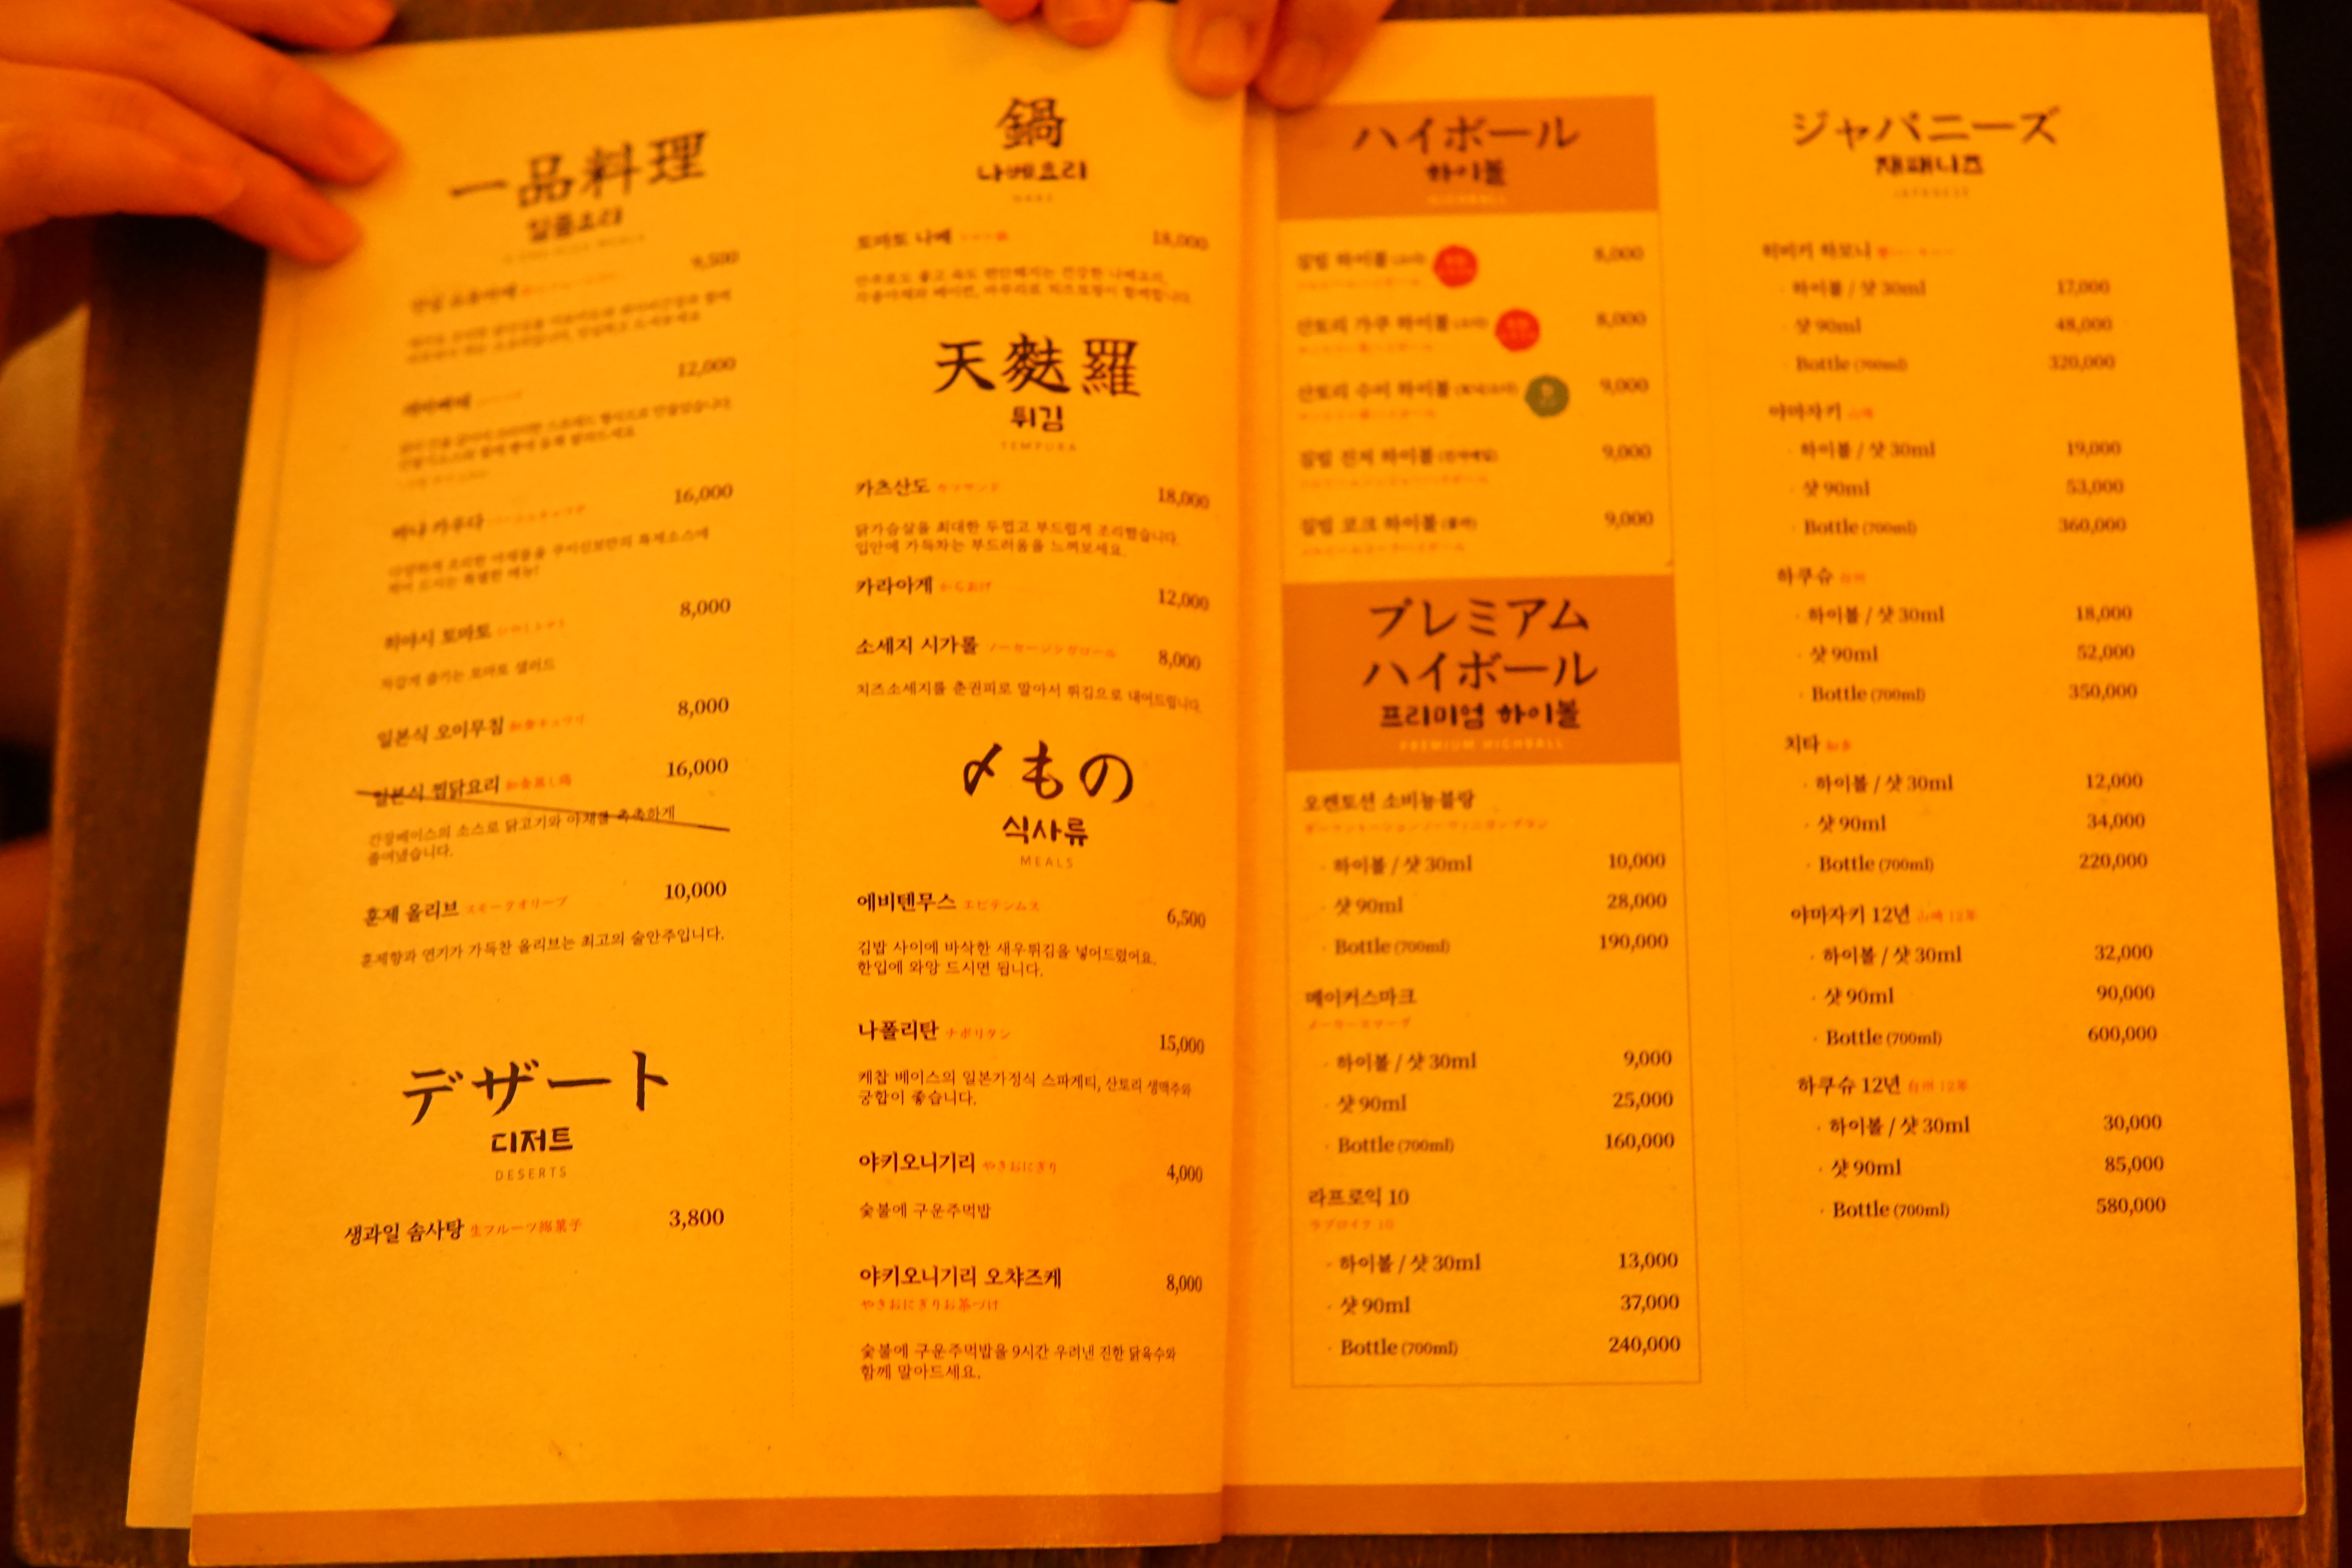 一品料理
일품요리
9,500
12,000
바냐 카우다
16,000
찍어 드시는 특별한 메뉴!
히야시 토마토
8,000
차갑게 즐기는 토마토 샐러드
일본식 오이무침
8,000
일본식 찜닭요리 和食蒸し鶏
16,000
간장베이스의 소스로 닭고기와 야채를 촉촉하게
졸여냈습니다.
훈제 올리브 スモークオリーブ
10,000
훈제향과 연기가 가득찬 올리브는 최고의 술안주입니다.
デザート
디저트
DESERTS
생과일 솜사탕 生フルーツ綿菓子
3,800
鍋
나베요리
NABE
토마토 나베 トマト鍋
18,000
안주로도 좋고 속도 편안해지는 건강한 나베요리,
天麩羅
튀김
TEMPURA
카츠산도 カツサンド
18,000
닭가슴살을 최대한 두껍고 부드럽게 조리했습니다.
입안에 가득차는 부드러움을 느껴보세요.
카라아게 からあげ
12,000
소세지 시가롤 ソーセージシガロール
8,000
치즈소세지를 춘권피로 말아서 튀김으로 내어드립니다.
〆もの
식사류
MEALS
에비텐무스 エビテンムス
6,500
김밥 사이에 바삭한 새우튀김을 넣어드렸어요.
한입에 와앙 드시면 됩니다.
나폴리탄 ナポリタン
15,000
케찹 베이스의 일본가정식 스파게티, 산토리 생맥주와
궁합이 좋습니다.
야키오니기리 やきおにぎり
4,000
숯불에 구운주먹밥
야키오니기리 오챠즈케
8,000
やきおにぎりお茶づけ
숯불에 구운주먹밥을 9시간 우려낸 진한 닭육수와
함께 말아드세요.
ハイボール
하이볼
HIGHBALL
짐빔 하이볼
8,000
산토리 가쿠 하이볼
8,000
산토리 수이 하이볼
9,000
짐빔 진저 하이볼
9,000
짐빔 코크 하이볼 (콜라)
9,000
プレミアム
ハイボール
프리미엄 하이볼
PREMIUM HIGHBALL
오켄토션 소비뇽블랑
· 하이볼 / 샷 30ml 10,000
· 샷 90ml 28,000
· Bottle (700ml) 190,000
메이커스마크
· 하이볼 / 샷 30ml 9,000
· 샷 90ml 25,000
· Bottle (700ml) 160,000
라프로익 10
ラプロイク 10
· 하이볼 / 샷 30ml 13,000
· 샷 90ml 37,000
· Bottle (700ml) 240,000
ジャパニーズ
재패니즈
JAPANESE
히비키 하모니
· 하이볼 / 샷 30ml 17,000
· 샷 90ml 48,000
· Bottle (700ml) 320,000
야마자키 山崎
· 하이볼 / 샷 30ml 19,000
· 샷 90ml 53,000
· Bottle (700ml) 360,000
하쿠슈 白州
· 하이볼 / 샷 30ml 18,000
· 샷 90ml 52,000
· Bottle (700ml) 350,000
치타 知多
· 하이볼 / 샷 30ml 12,000
· 샷 90ml 34,000
· Bottle (700ml) 220,000
야마자키 12년 山崎 12年
· 하이볼 / 샷 30ml 32,000
· 샷 90ml 90,000
· Bottle (700ml) 600,000
하쿠슈 12년 白州 12年
· 하이볼 / 샷 30ml 30,000
· 샷 90ml 85,000
· Bottle (700ml) 580,000